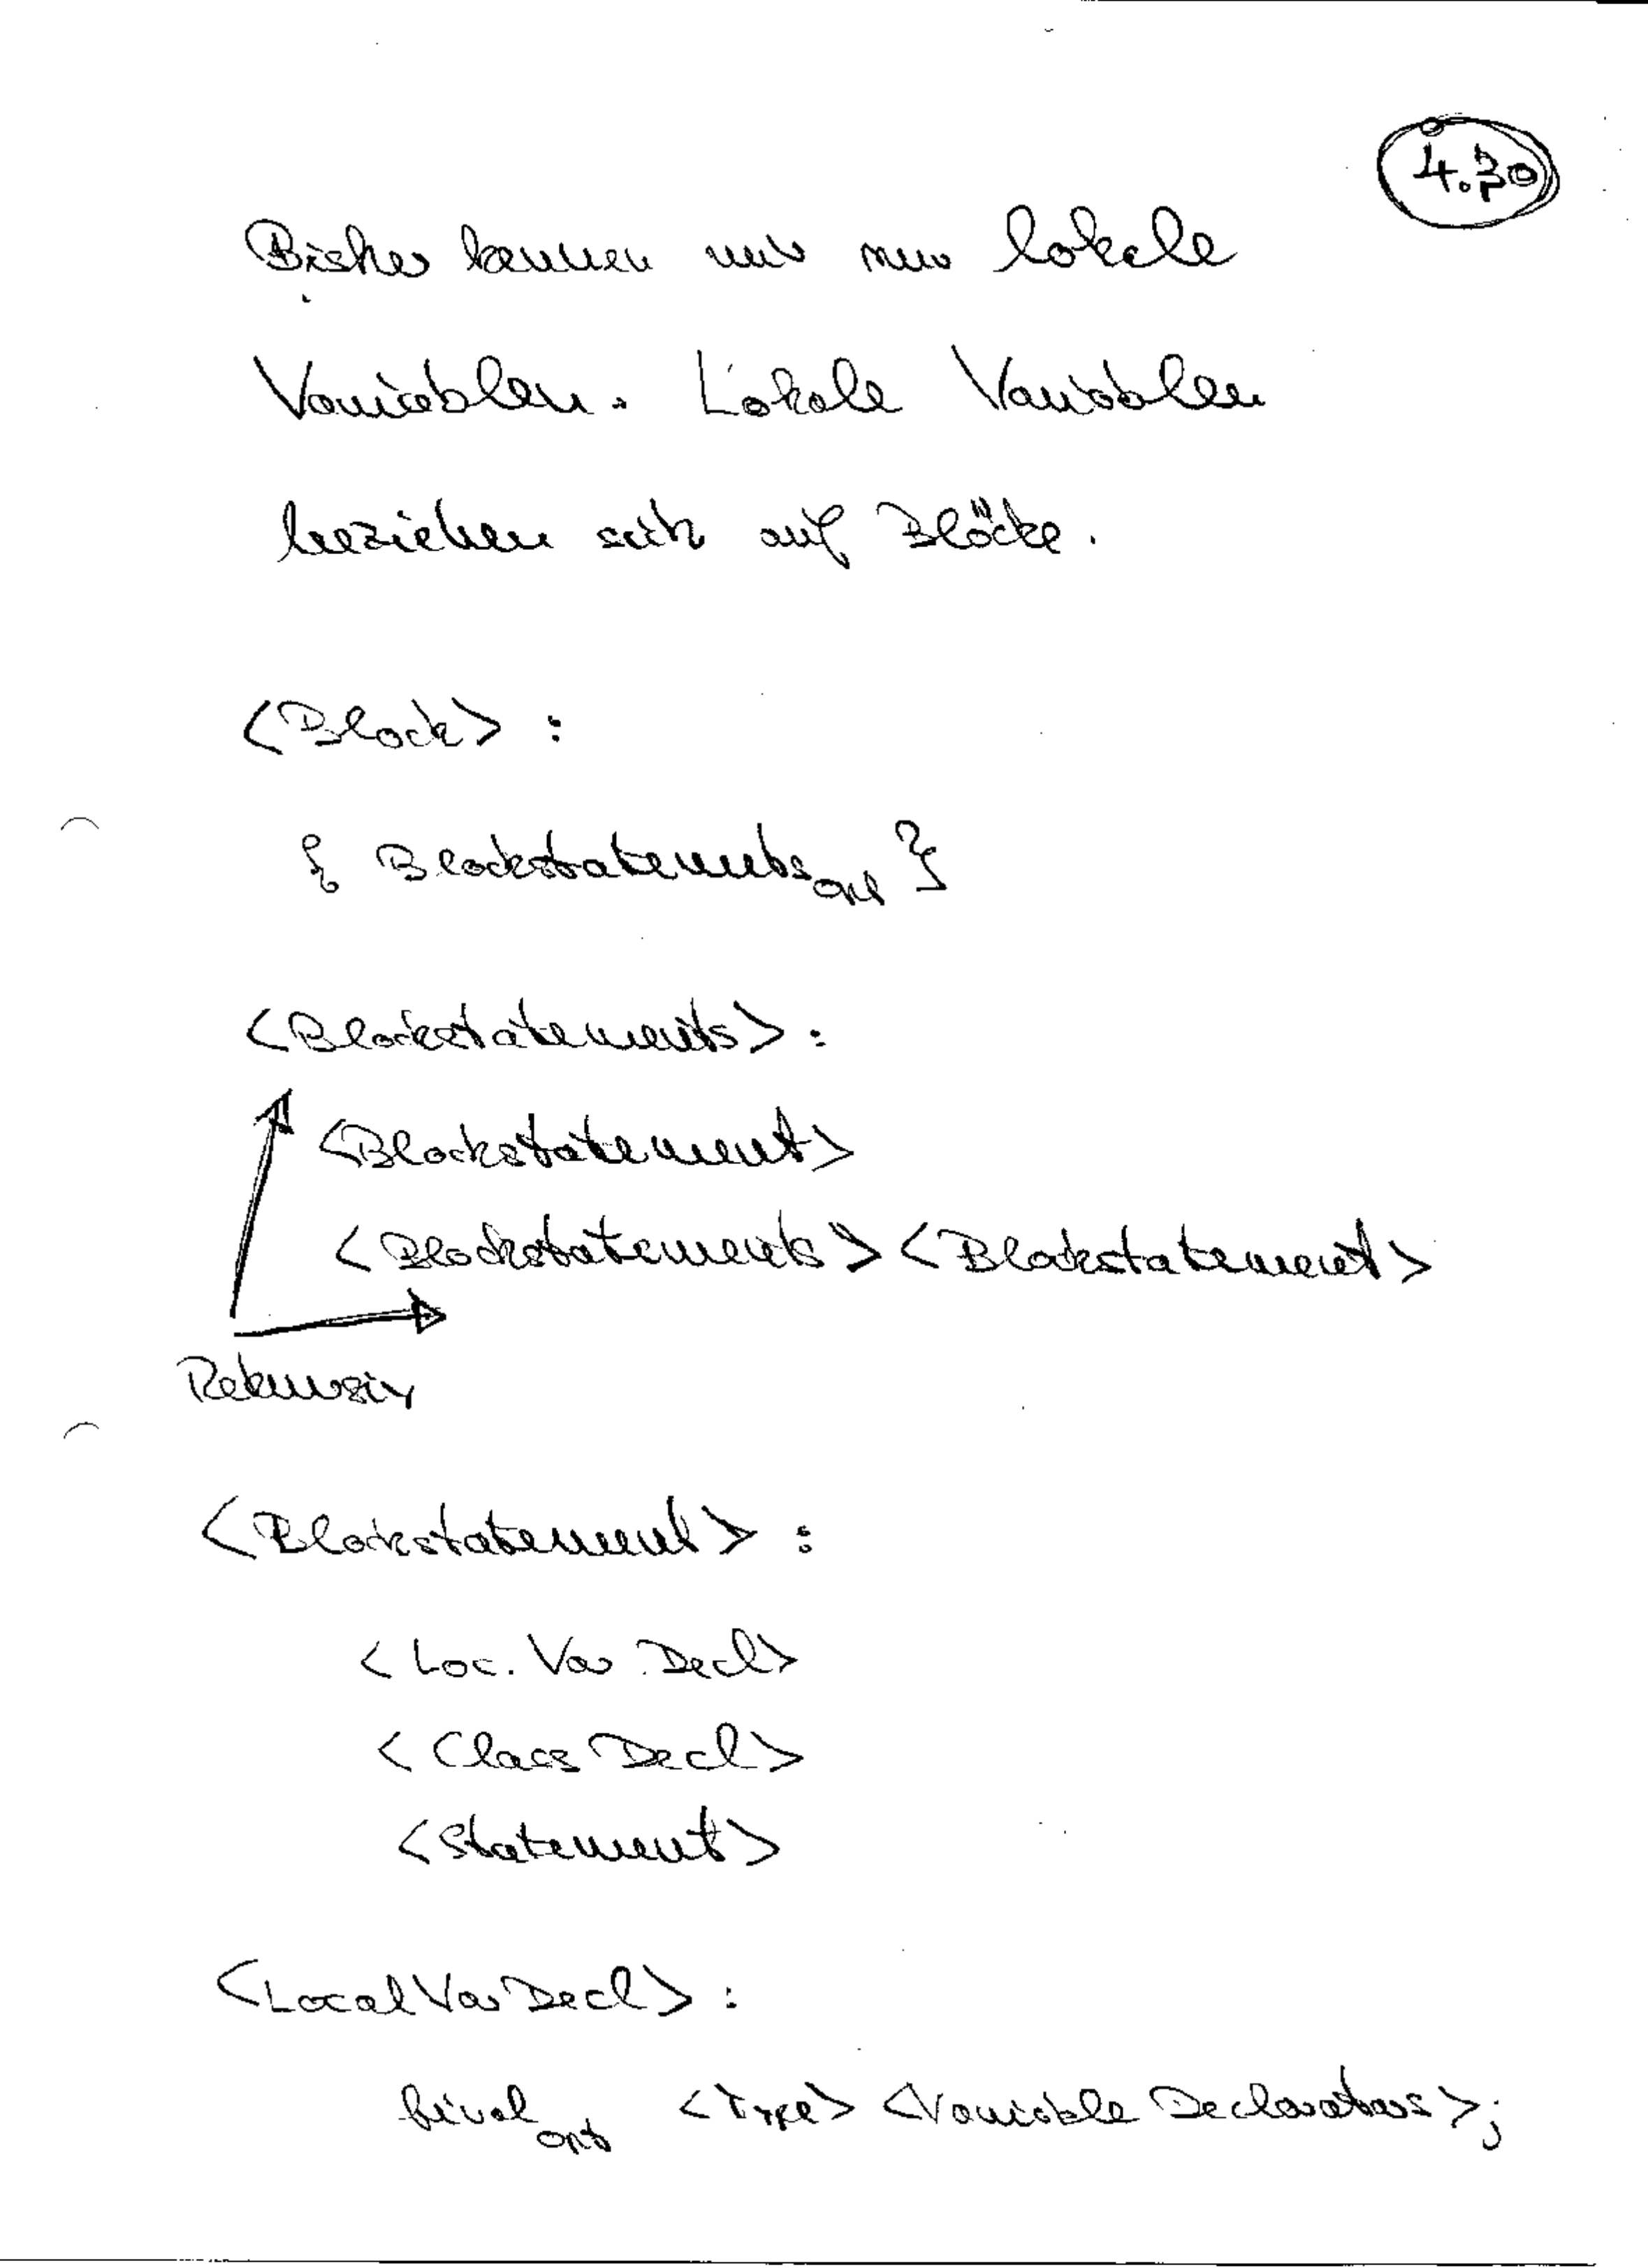 4.30
Bisher kennen wir nur lokale
Variablen. Lokale Variablen
beziehen sich auf Blöcke.
<Block> :
{ Blockstatements opt }
<Blockstatements> :
<Blockstatement>
<Blockstatements> <Blockstatement>
Rekursiv
<Blockstatement> :
<Loc. Var. Decl>
<Class Decl>
<Statement>
<Local Var Decl> :
final opt <Type> <Variable Declarators>;